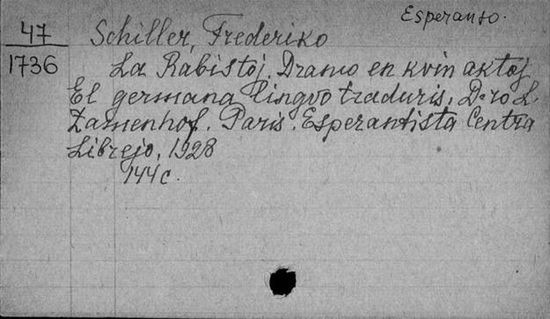 Esperanto.
47
1736
Schiller, Frederiko
La Rabistoj. Dramo en kvin aktoj.
El germana lingvo traduris, D-ro L.
Zamenhof. Paris. Esperantista Centra
Librejo, 1928
144 c.